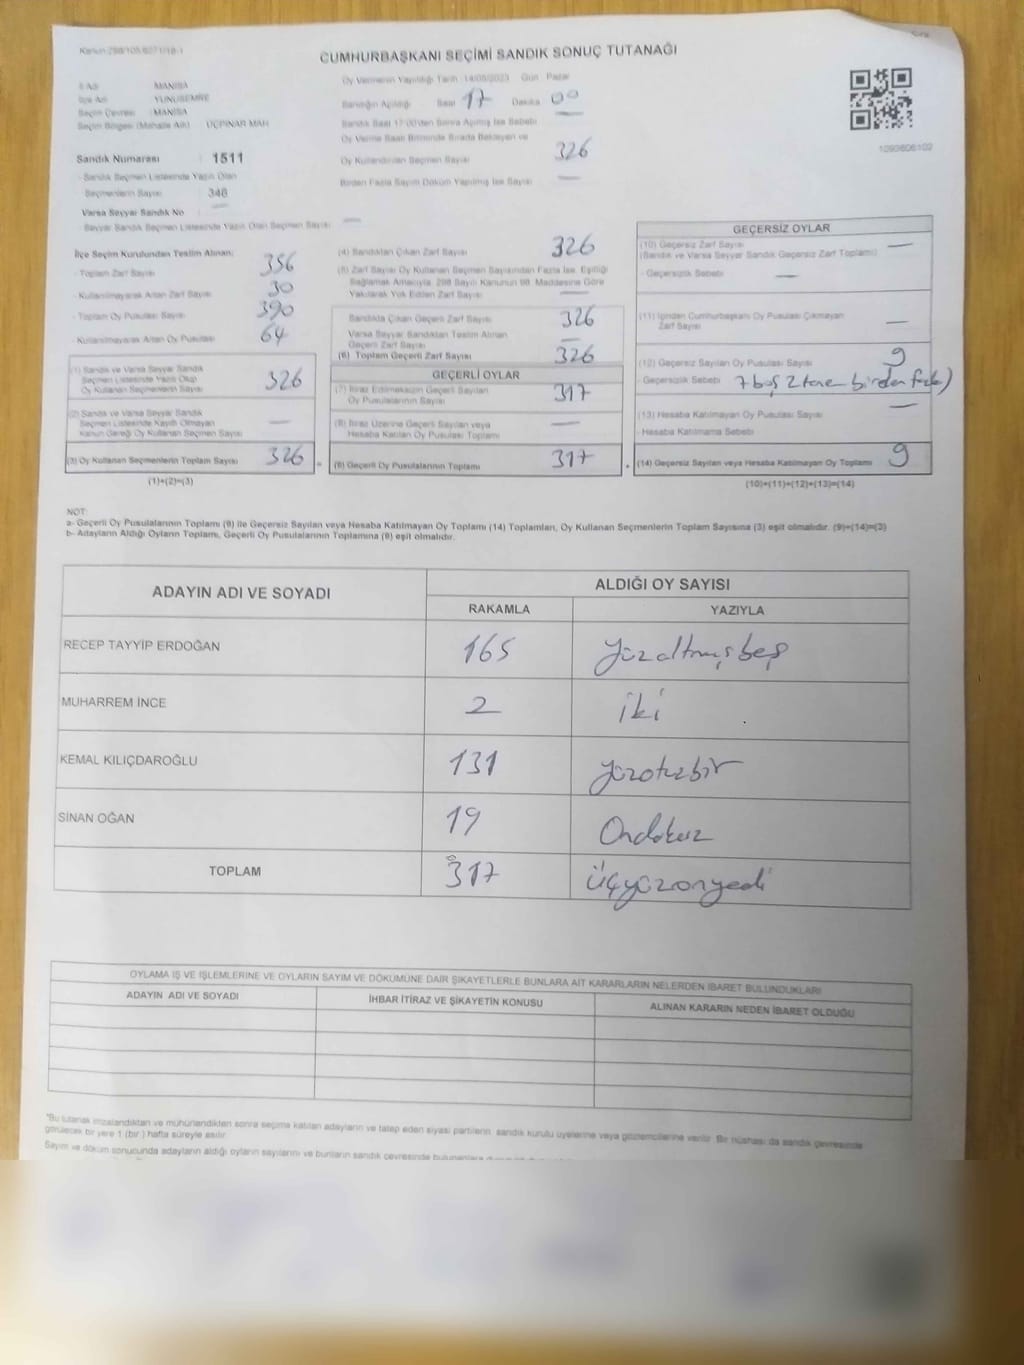 Kanun 298/105
CUMHURBAŞKANI SEÇİMİ SANDIK SONUÇ TUTANAĞI
Sıra
İl Adı MANİSA
İlçe Adı YUNUSEMRE
Seçim Çevresi : MANİSA
Seçim Bölgesi (Mahalle Adı) ÜÇPINAR MAH
Oy Vermenin Yapıldığı Tarih : 14/05/2023 Gün Pazar
Sandığın Açıldığı Saat 17 Dakika 00
Sandık Saat 17:00'den Sonra Açılmış İse Sebebi —
Oy Verme Saati Bitiminde Sırada Bekleyen ve
Oy Kullandırılan Seçmen Sayısı 326
Birden Fazla Sayım Döküm Yapılmış İse Sayısı —
Sandık Numarası : 1511
- Sandık Seçmen Listesinde Yazılı Olan
Seçmenlerin Sayısı : 346
Varsa Seyyar Sandık No —
- Seyyar Sandık Seçmen Listesinde Yazılı Olan Seçmen Sayısı —
İlçe Seçim Kurulundan Teslim Alınan:
- Toplam Zarf Sayısı 356
- Kullanılmayarak Artan Zarf Sayısı 30
- Toplam Oy Pusulası Sayısı 390
- Kullanılmayarak Artan Oy Pusulası 64
(1) Sandık ve Varsa Seyyar Sandık
Seçmen Listesinde Yazılı Olup
Oy Kullanan Seçmenlerin Sayısı 326
(2) Sandık ve Varsa Seyyar Sandık
Seçmen Listesinde Kayıtlı Olmayan
Kanun Gereği Oy Kullanan Seçmen Sayısı —
(3) Oy Kullanan Seçmenlerin Toplam Sayısı 326
(1)+(2)=(3)
(4) Sandıktan Çıkan Zarf Sayısı 326
(5) Zarf Sayısı Oy Kullanan Seçmen Sayısından Fazla İse, Eşitliği
Sağlamak Amacıyla, 298 Sayılı Kanunun 98. Maddesine Göre
Yakılarak Yok Edilen Zarf Sayısı —
Sandıkta Çıkan Geçerli Zarf Sayısı 326
Varsa Seyyar Sandıktan Teslim Alınan
Geçerli Zarf Sayısı —
(6) Toplam Geçerli Zarf Sayısı 326
GEÇERLİ OYLAR
(7) İtiraz Edilmeksizin Geçerli Sayılan
Oy Pusulalarının Sayısı 317
(8) İtiraz Üzerine Geçerli Sayılan veya
Hesaba Katılan Oy Pusulası Toplamı —
(9) Geçerli Oy Pusulalarının Toplamı 317
GEÇERSİZ OYLAR
(10) Geçersiz Zarf Sayısı —
(Sandık ve Varsa Seyyar Sandık Geçersiz Zarf Toplamı)
- Geçersizlik Sebebi —
(11) İçinden Cumhurbaşkanı Oy Pusulası Çıkmayan
Zarf Sayısı —
(12) Geçersiz Sayılan Oy Pusulası Sayısı 9
- Geçersizlik Sebebi 7 boş 2 tane birden fazla)
(13) Hesaba Katılmayan Oy Pusulası Sayısı —
- Hesaba Katılmama Sebebi
(14) Geçersiz Sayılan veya Hesaba Katılmayan Oy Toplamı 9
(10)+(11)+(12)+(13)=(14)
NOT:
a- Geçerli Oy Pusulalarının Toplamı (9) ile Geçersiz Sayılan veya Hesaba Katılmayan Oy Toplamı (14) Toplamları, Oy Kullanan Seçmenlerin Toplam Sayısına (3) eşit olmalıdır. (9)+(14)=(3)
b- Adayların Aldığı Oyların Toplamı, Geçerli Oy Pusulalarının Toplamına (9) eşit olmalıdır.
ADAYIN ADI VE SOYADI ALDIĞI OY SAYISI
RAKAMLA YAZIYLA
RECEP TAYYİP ERDOĞAN 165 yüzaltmışbeş
MUHARREM İNCE 2 iki
KEMAL KILIÇDAROĞLU 131 yüzotuzbir
SİNAN OĞAN 19 Ondokuz
TOPLAM 317 Üçyüzonyedi
OYLAMA İŞ VE İŞLEMLERİNE VE OYLARIN SAYIM VE DÖKÜMÜNE DAİR ŞİKAYETLERLE BUNLARA AİT KARARLARIN NELERDEN İBARET BULUNDUKLARI
ADAYIN ADI VE SOYADI İHBAR İTİRAZ VE ŞİKAYETİN KONUSU ALINAN KARARIN NEDEN İBARET OLDUĞU
*Bu tutanak imzalandıktan ve mühürlendikten sonra seçime katılan adayların ve talep eden siyasi partilerin sandık kurulu üyelerine veya gözlemcilerine verilir. Bir nüshası da sandık çevresinde
görülecek bir yere 1 (bir) hafta süreyle asılır.
Sayım ve döküm sonucunda adayların aldığı oyların sayılarını ve bunların sandık çevresinde bulunanlara